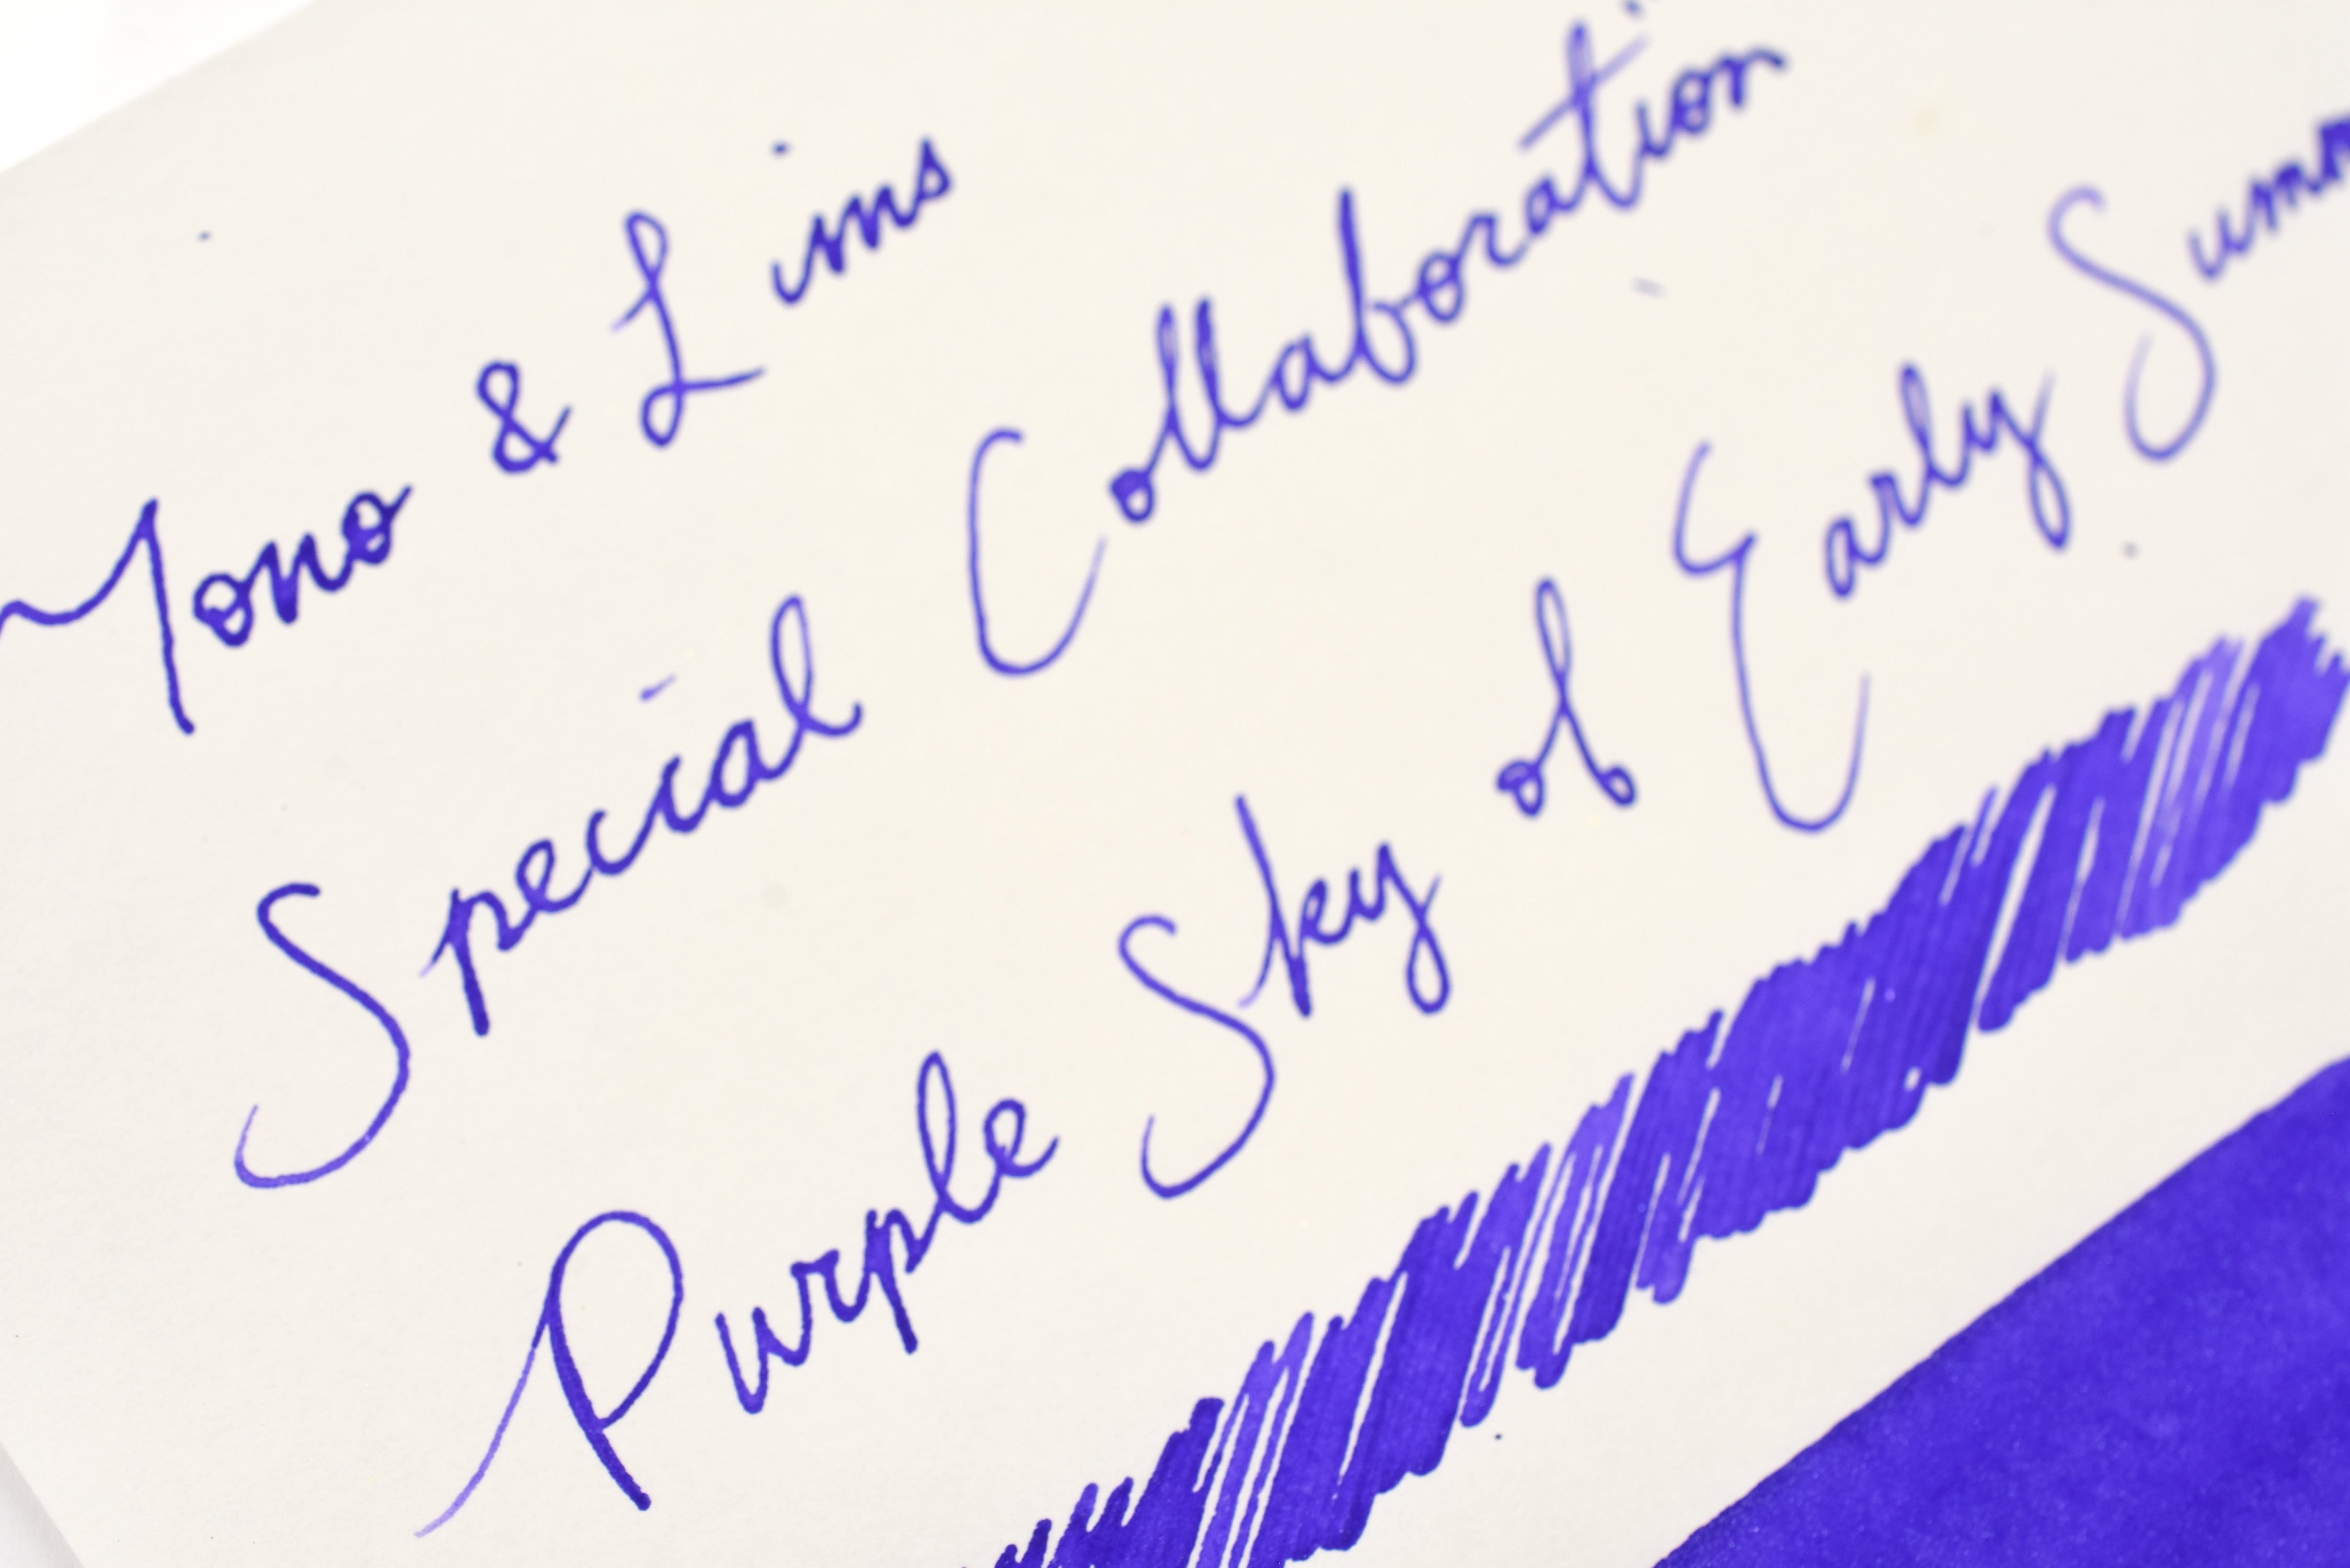 Tono & Lims
Special Collaboration
Purple Sky of Early Summ